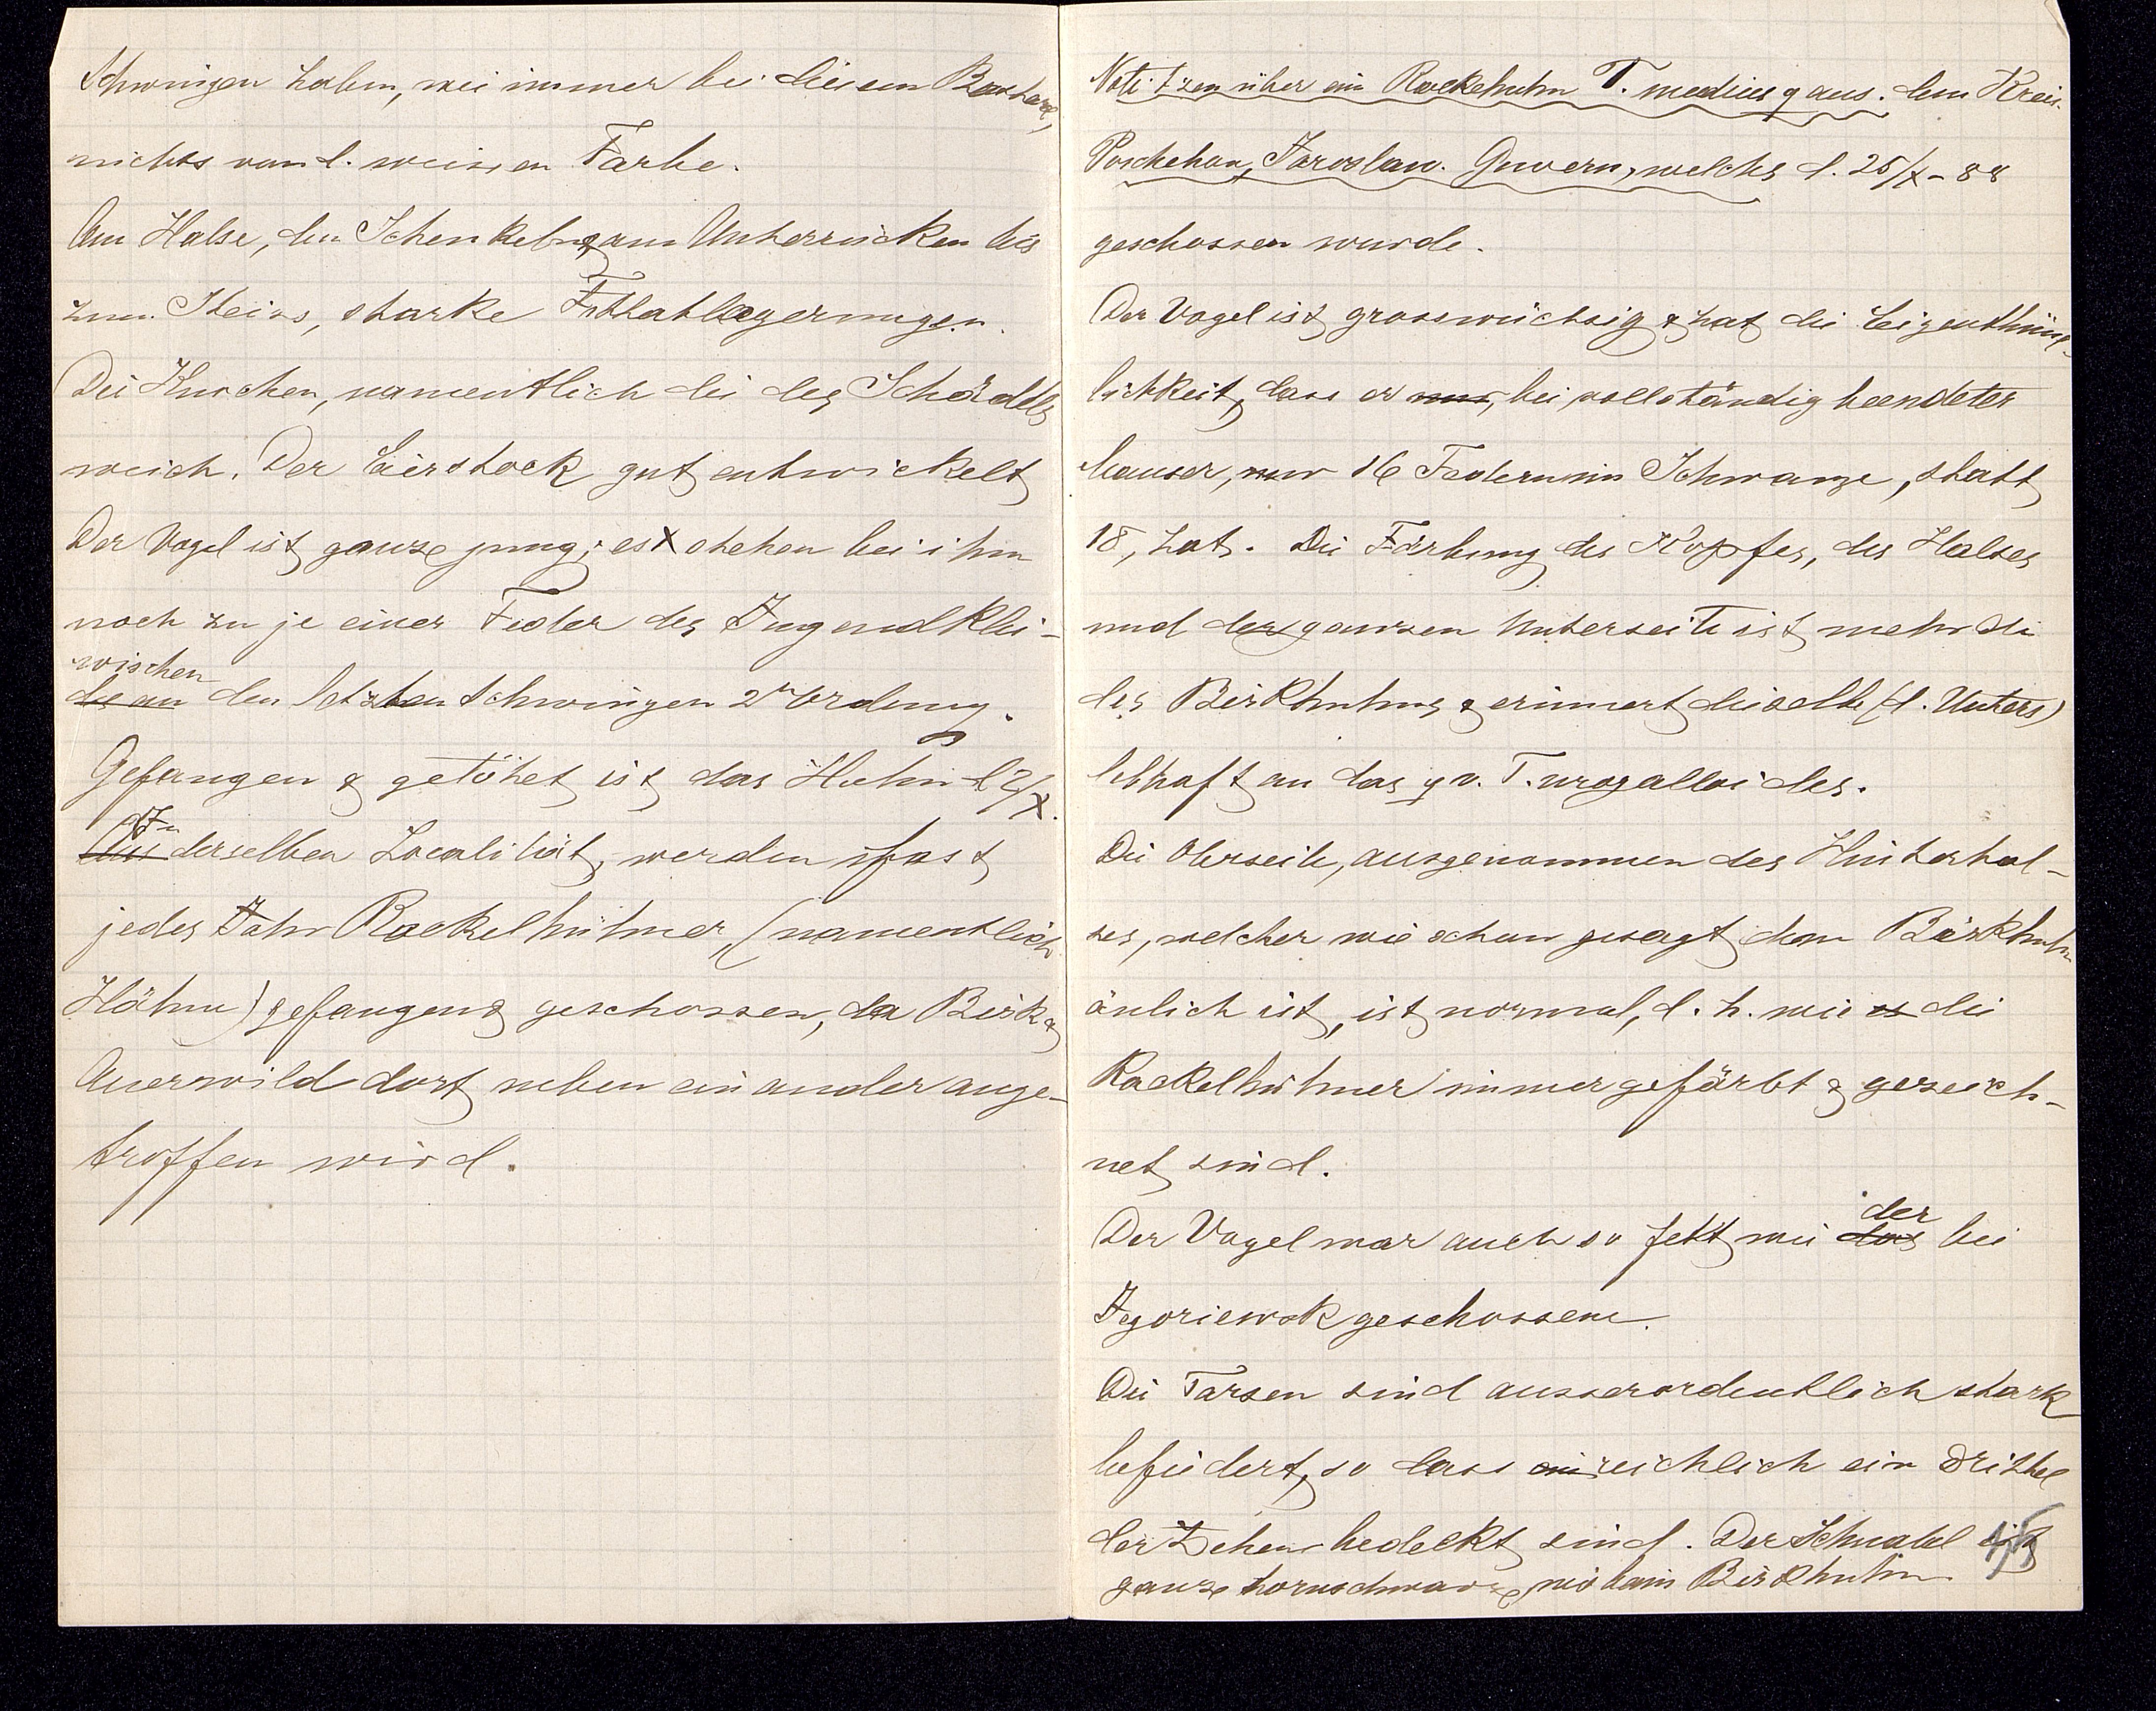 Schwingen haben, wie immer bei diesem Bastard,
nichts von d. weissen Farbe.
Am Halse, den Schenkeln & am Unterrücken bis
zum Steiss, starke Fettablagerungen.
Die Knochen, namentlich die des Schädels
weich. Der Eierstock gut entwickelt
Der Vogel ist ganze jung; es stehen bei ihm
noch zu je einer Feder des Jugendklei-
wischen
des an den letzten Schwingen 2r Ordnung.
Gefangen & getötet ist das Huhn d 2/X.
Aus derselben Localität, werden fast
jedes Jahr Rackelhühner (namentlich
Hähne) gefangen & geschossen, da Birk &
Auerwild dort neben einander ange-
troffen wird.
Notitzen über ein Rackehuhn T. medius ♀ aus. dem Kreis.
Poschehon, Jaroslaw. Guvern, welches d. 25/X - 88
geschossen wurde.
Der Vogel ist grosswüchsig & hat die Eigenthüm-
lichkeit, dass er nur, bei vollständig beendeter
Mauser, nur 16 Federn im Schwanze, statt
18, hat. Die Färbung des Kopfes, des Halses
und der ganzen Unterseite ist mehr die
des Birkhuhns & erinnert dieselbe (d. Unters)
lebhaft an das ♀ v. T. urogalloides.
Die Oberseite, ausgenommen des Hinterhal-
ses, welcher wie schon gesagt dem Birkhuhn
änlich ist, ist normal, d. h. wie es die
Rackelhühner immer gefärbt & gezeich-
net sind.
der
Der Vogel war auch so fett wie das bei
Jegoriewsk geschossene.
Die Tarsen sind ausserordentlich stark
befiedert, so dass ein reichlich ein Drittel
der Zehen bedeckt sind. Der Schnabel ist
ganze hornschwarz, wie beim Birkhuhn